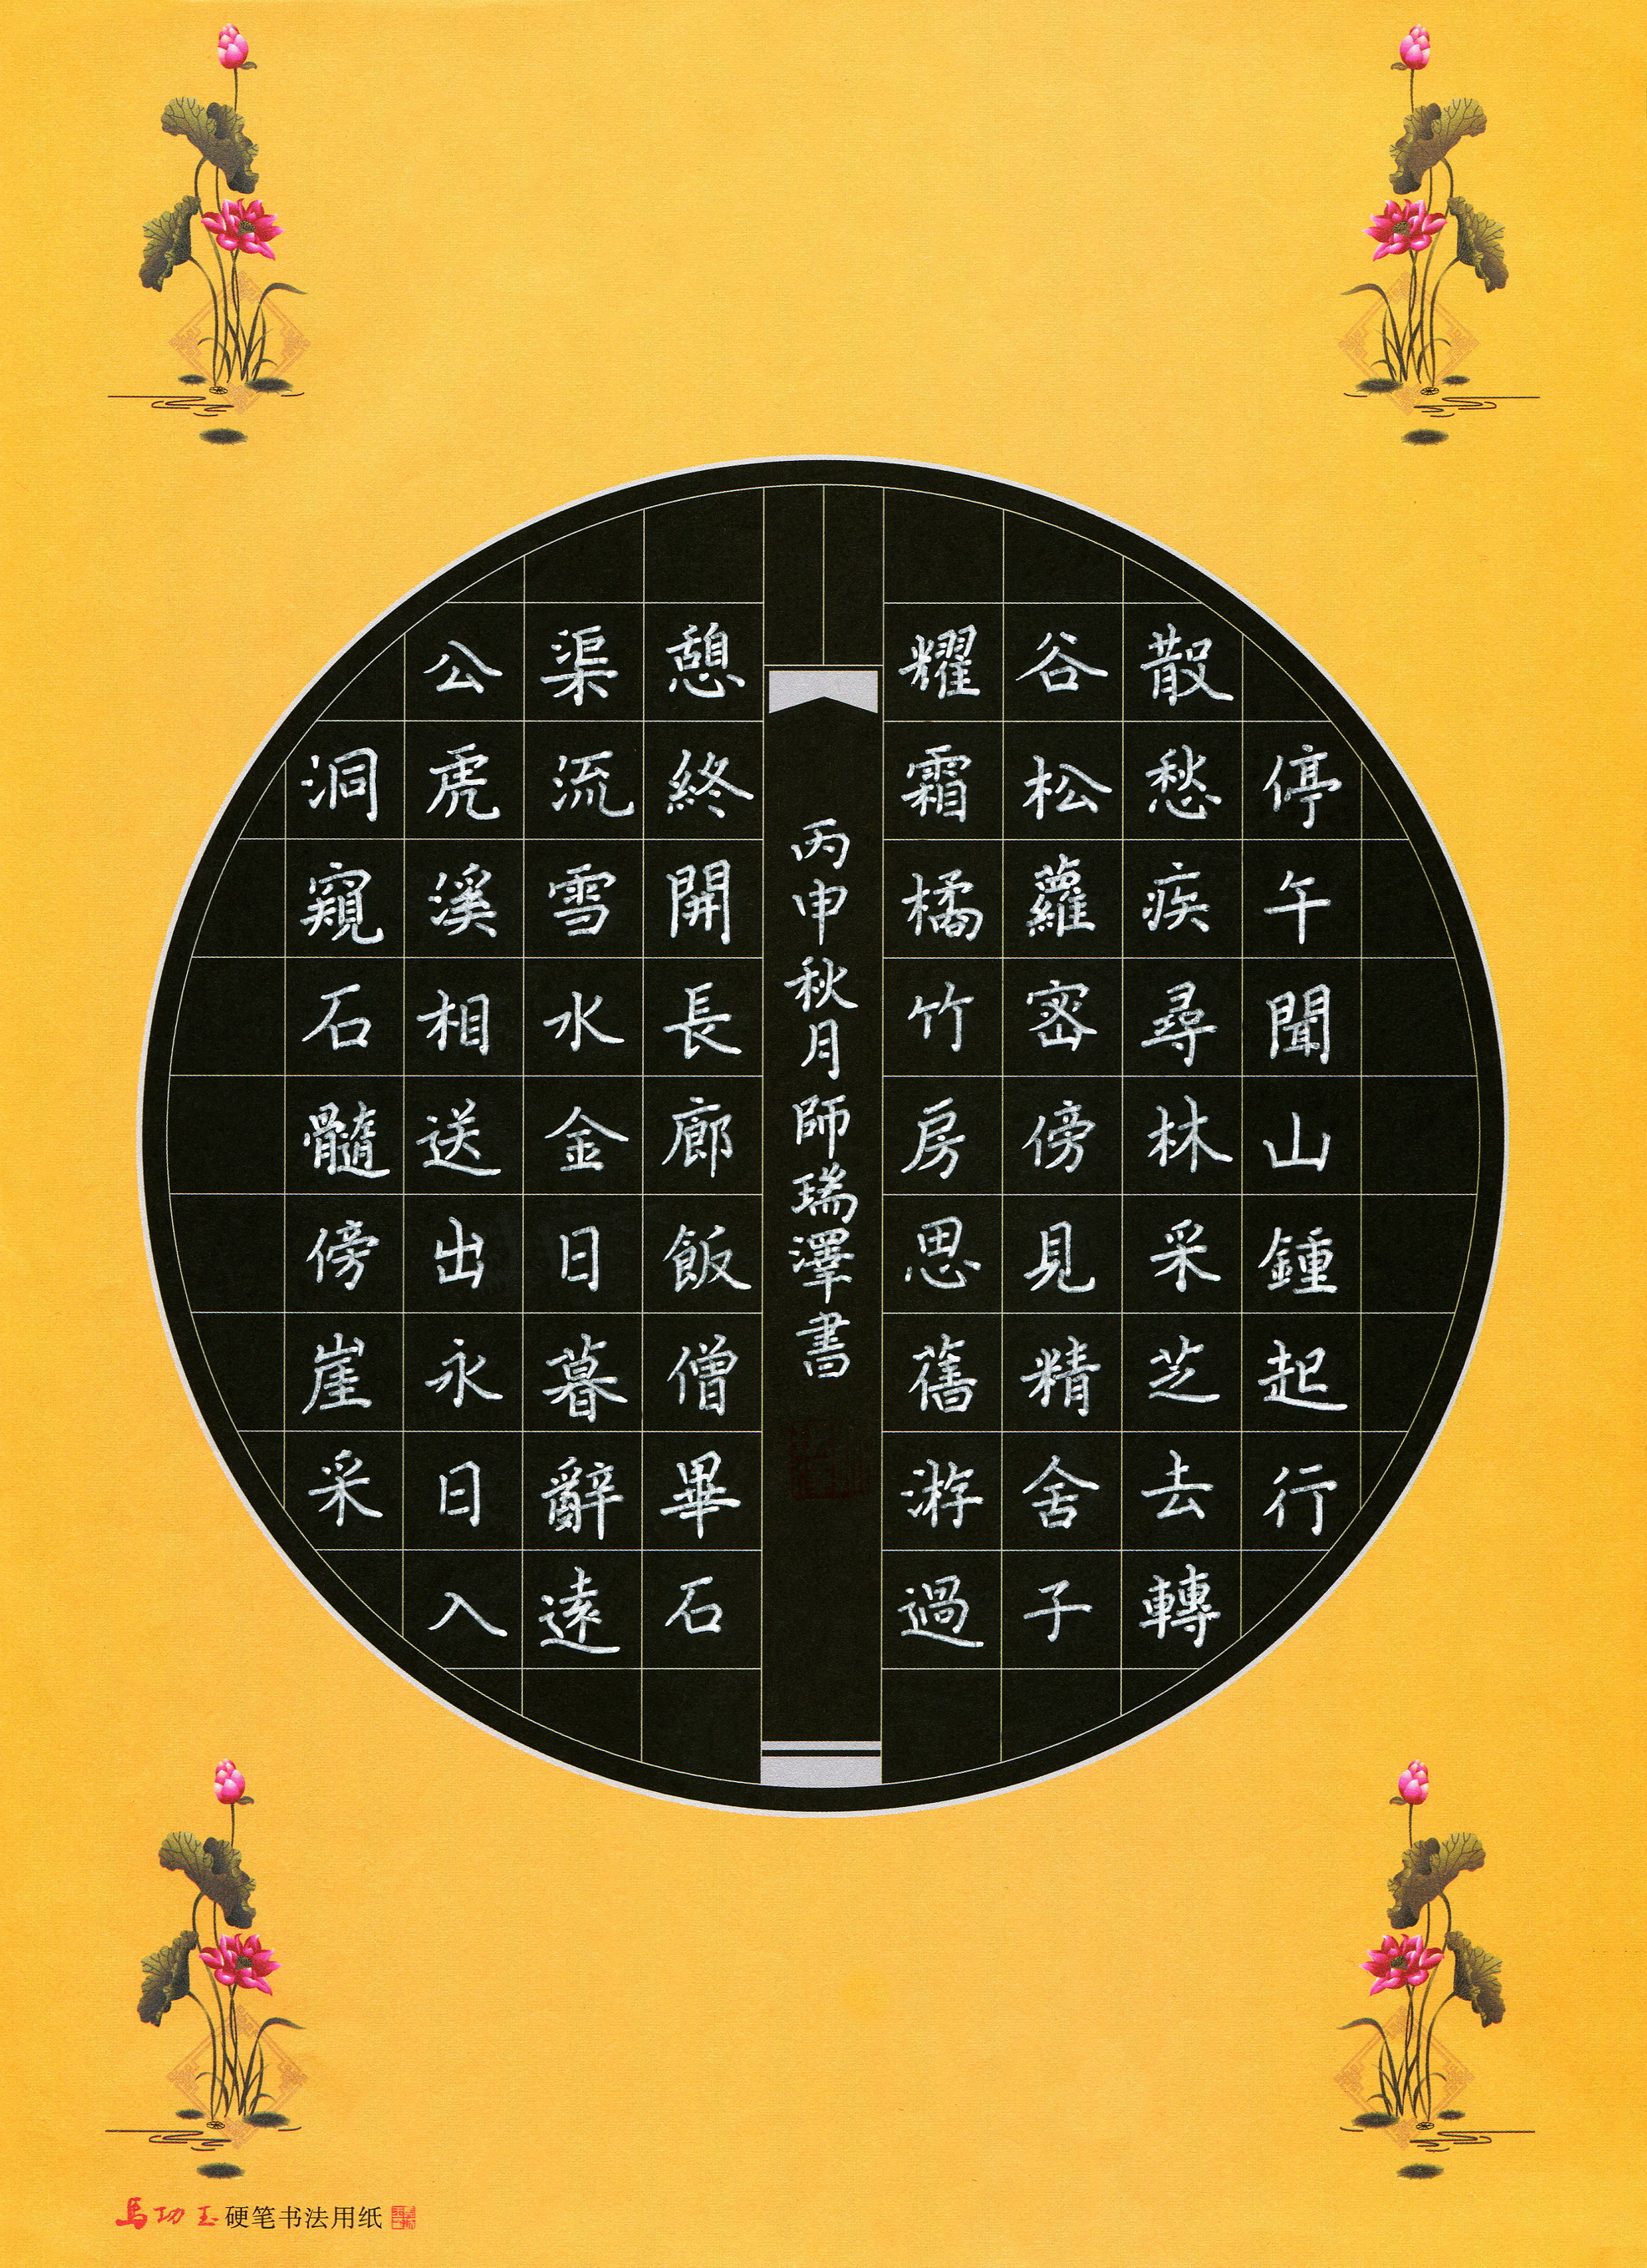 停午聞山鍾起行
散愁疾尋林采芝去轉
谷松蘿密傍見精舍子
耀霜橘竹房思舊游過
丙申秋月師瑞澤書
憩終開長廊飯僧畢石
渠流雪水金日暮辭遠
公虎溪相送出永日入
洞窺石髓傍崖采
馬功玉硬笔书法用纸